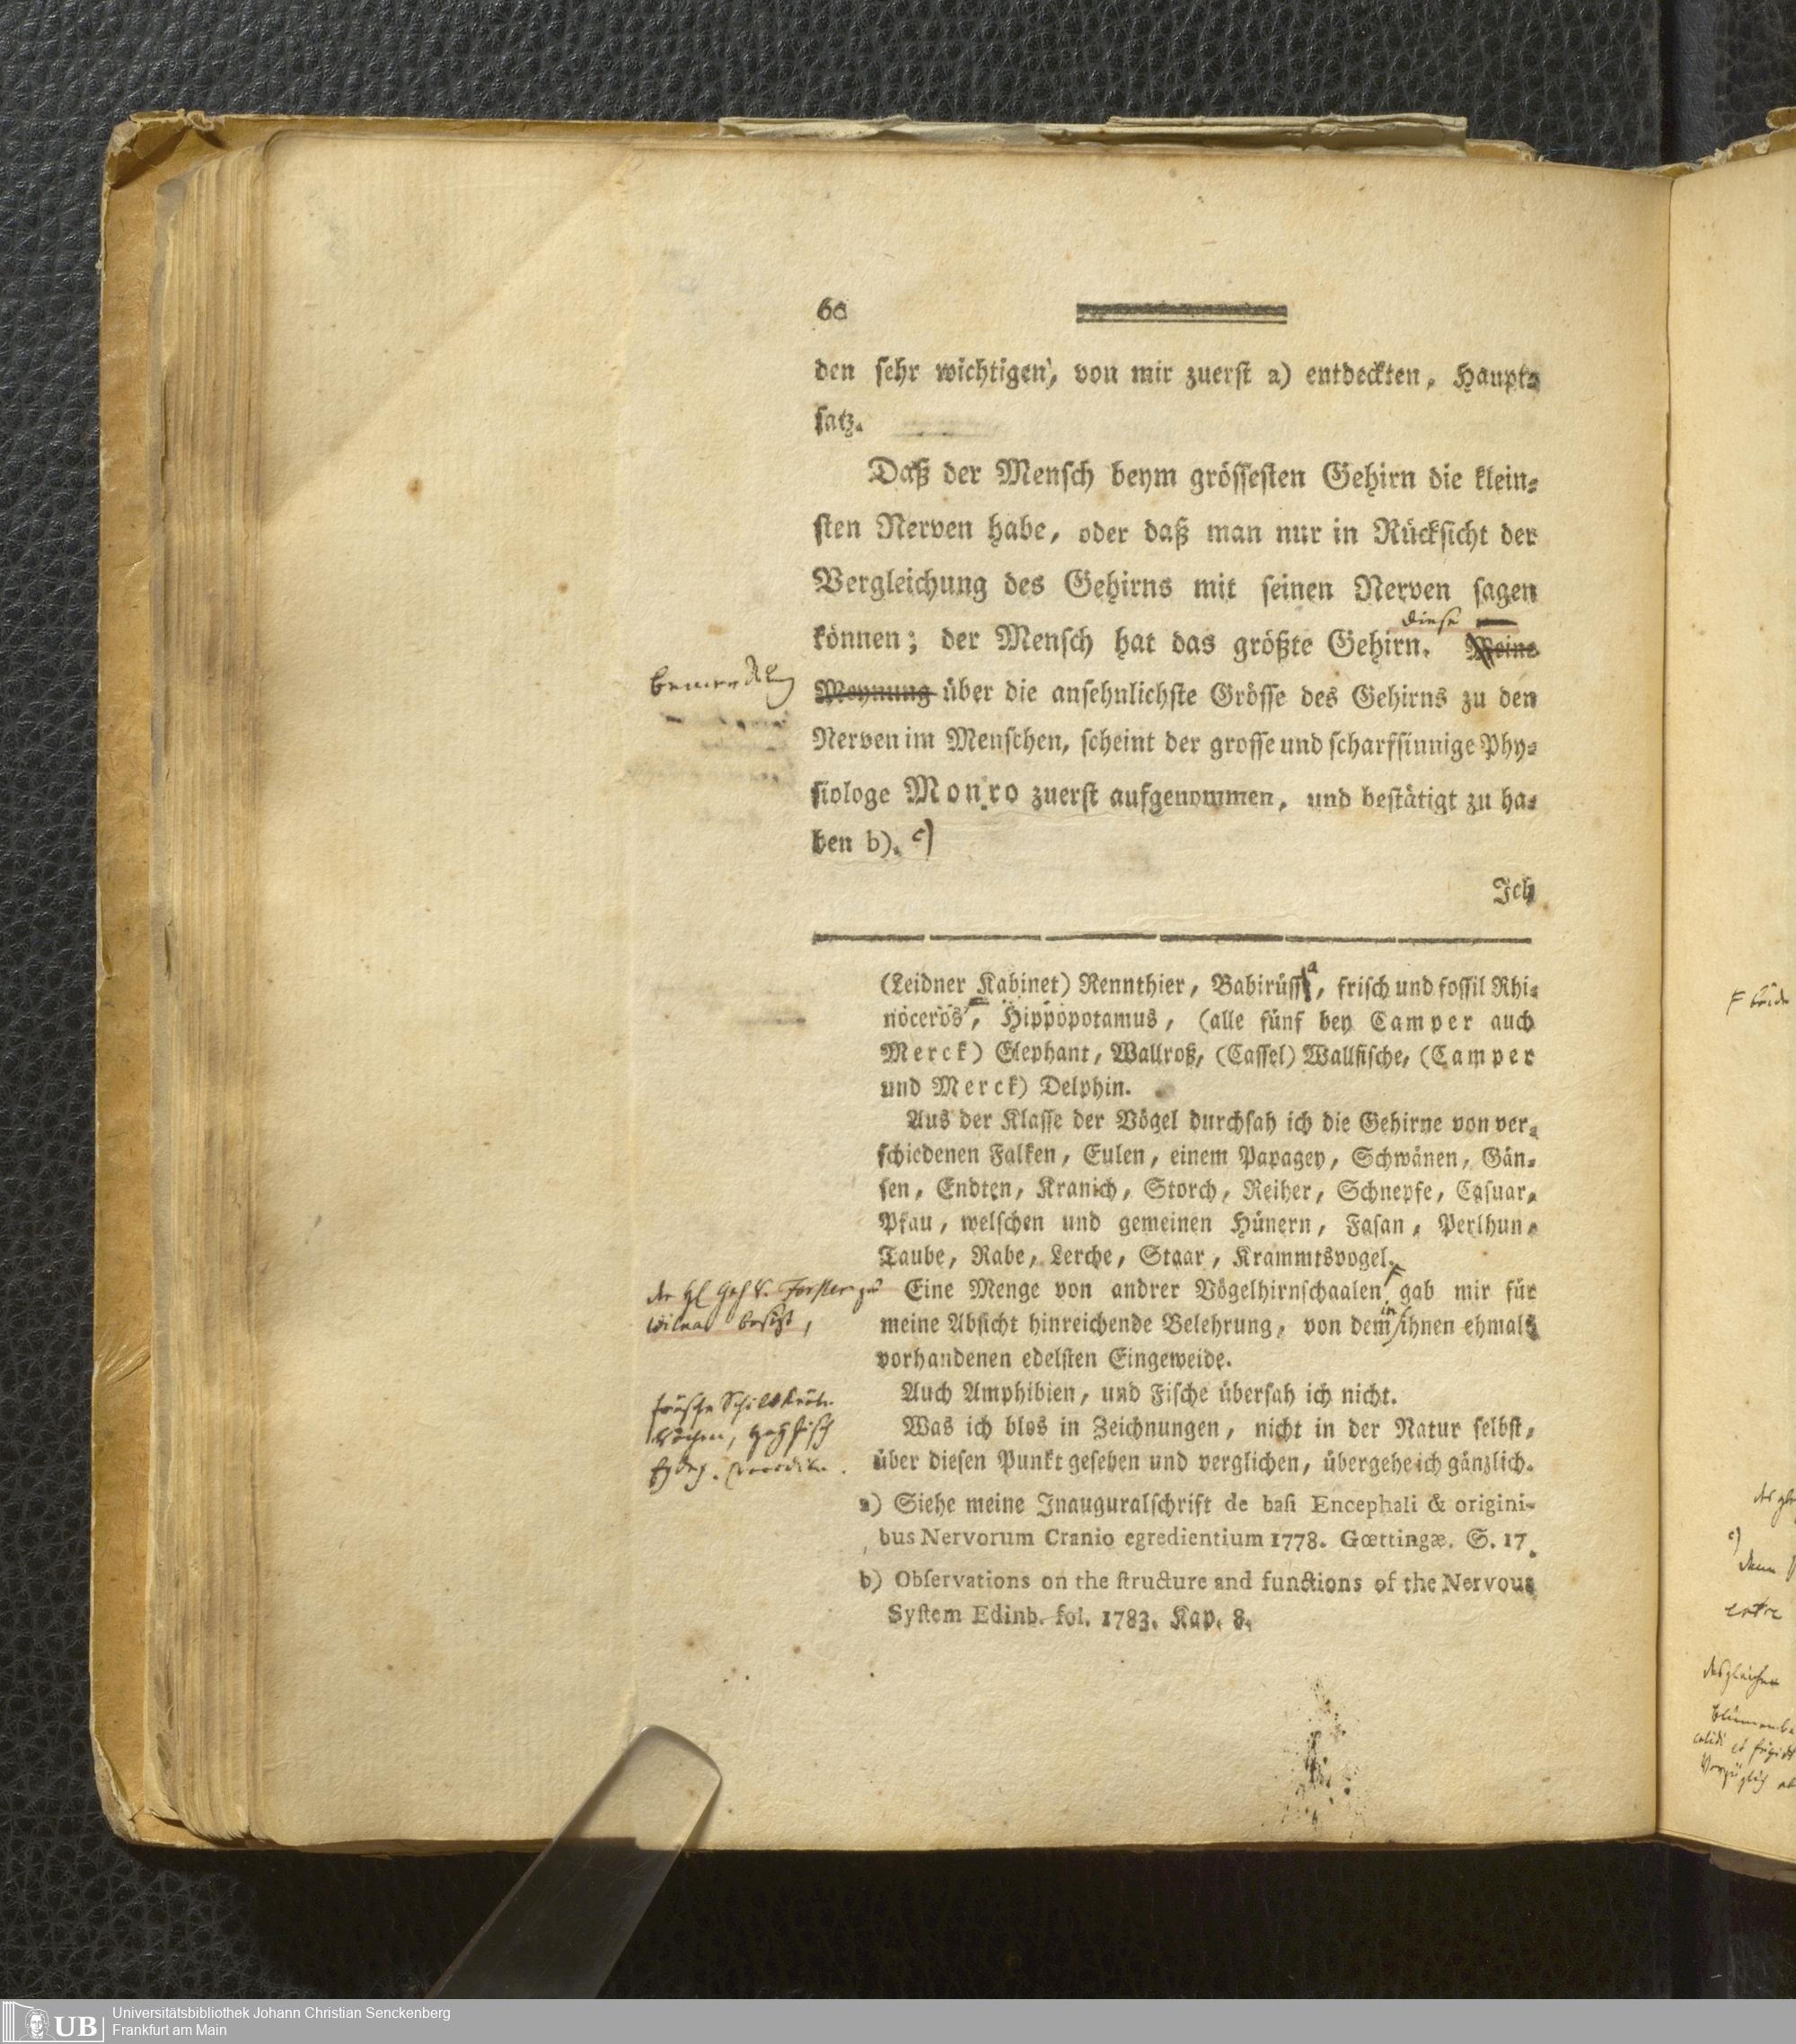 60
den ſehr wichtigen, von mir zuerſt a) entdeckten, Haupt⸗
ſatz.
Daß der Menſch beym gröſſeſten Gehirn die klein⸗
ſten Nerven habe, oder daß man nur in Rückſicht der
Vergleichung des Gehirns mit ſeinen Nerven ſagen
dieſe
können; der Menſch hat das größte Gehirn. Meine
Meynung über die anſehnlichſte Gröſſe des Gehirns zu den
Nerven im Menſchen, ſcheint der groſſe und ſcharfſinnige Phy⸗
ſiologe Monro zuerſt aufgenommen, und beſtätigt zu ha⸗
ben b). c)
Ich
(Leidner Kabinet) Rennthier, Babirüſſa, friſch und foſſil Rhi⸗
noceros, Hippopotamus, (alle fünf bey Camper auch
Merck) Elephant, Wallroß, (Caſſel) Wallfiſche, (Camper
und Merck) Delphin.
Aus der Klaſſe der Vögel durchſah ich die Gehirne von ver⸗
ſchiedenen Falken, Eulen, einem Papagey, Schwänen, Gän⸗
ſen, Endten, Kranich, Storch, Reiher, Schnepfe, Caſuar,
Pfau, welſchen und gemeinen Hünern, Faſan, Perlhun,
Taube, Rabe, Lerche, Staar, Krammtsvogel.
der Forster zu
Wilna beſitzt,
Eine Menge von andrer Vögelhirnſchaalen gab mir für
meine Abſicht hinreichende Belehrung, von dem in ihnen ehmals
vorhandenen edelſten Eingeweide.
Auch Amphibien, und Fiſche überſah ich nicht.
Was ich blos in Zeichnungen, nicht in der Natur ſelbſt,
über dieſen Punkt geſehen und verglichen, übergehe ich gänzlich.
a) Siehe meine Inauguralſchrift de baſi Encephali & origini-
bus Nervorum Cranio egredientium 1778. Gœttingæ. S. 17.
b) Obſervations on the ſtructure and functions of the Nervous
Syſtem Edinb. fol. 1783. Kap. 8.
UB
Universitätsbibliothek Johann Christian Senckenberg
Frankfurt am Main